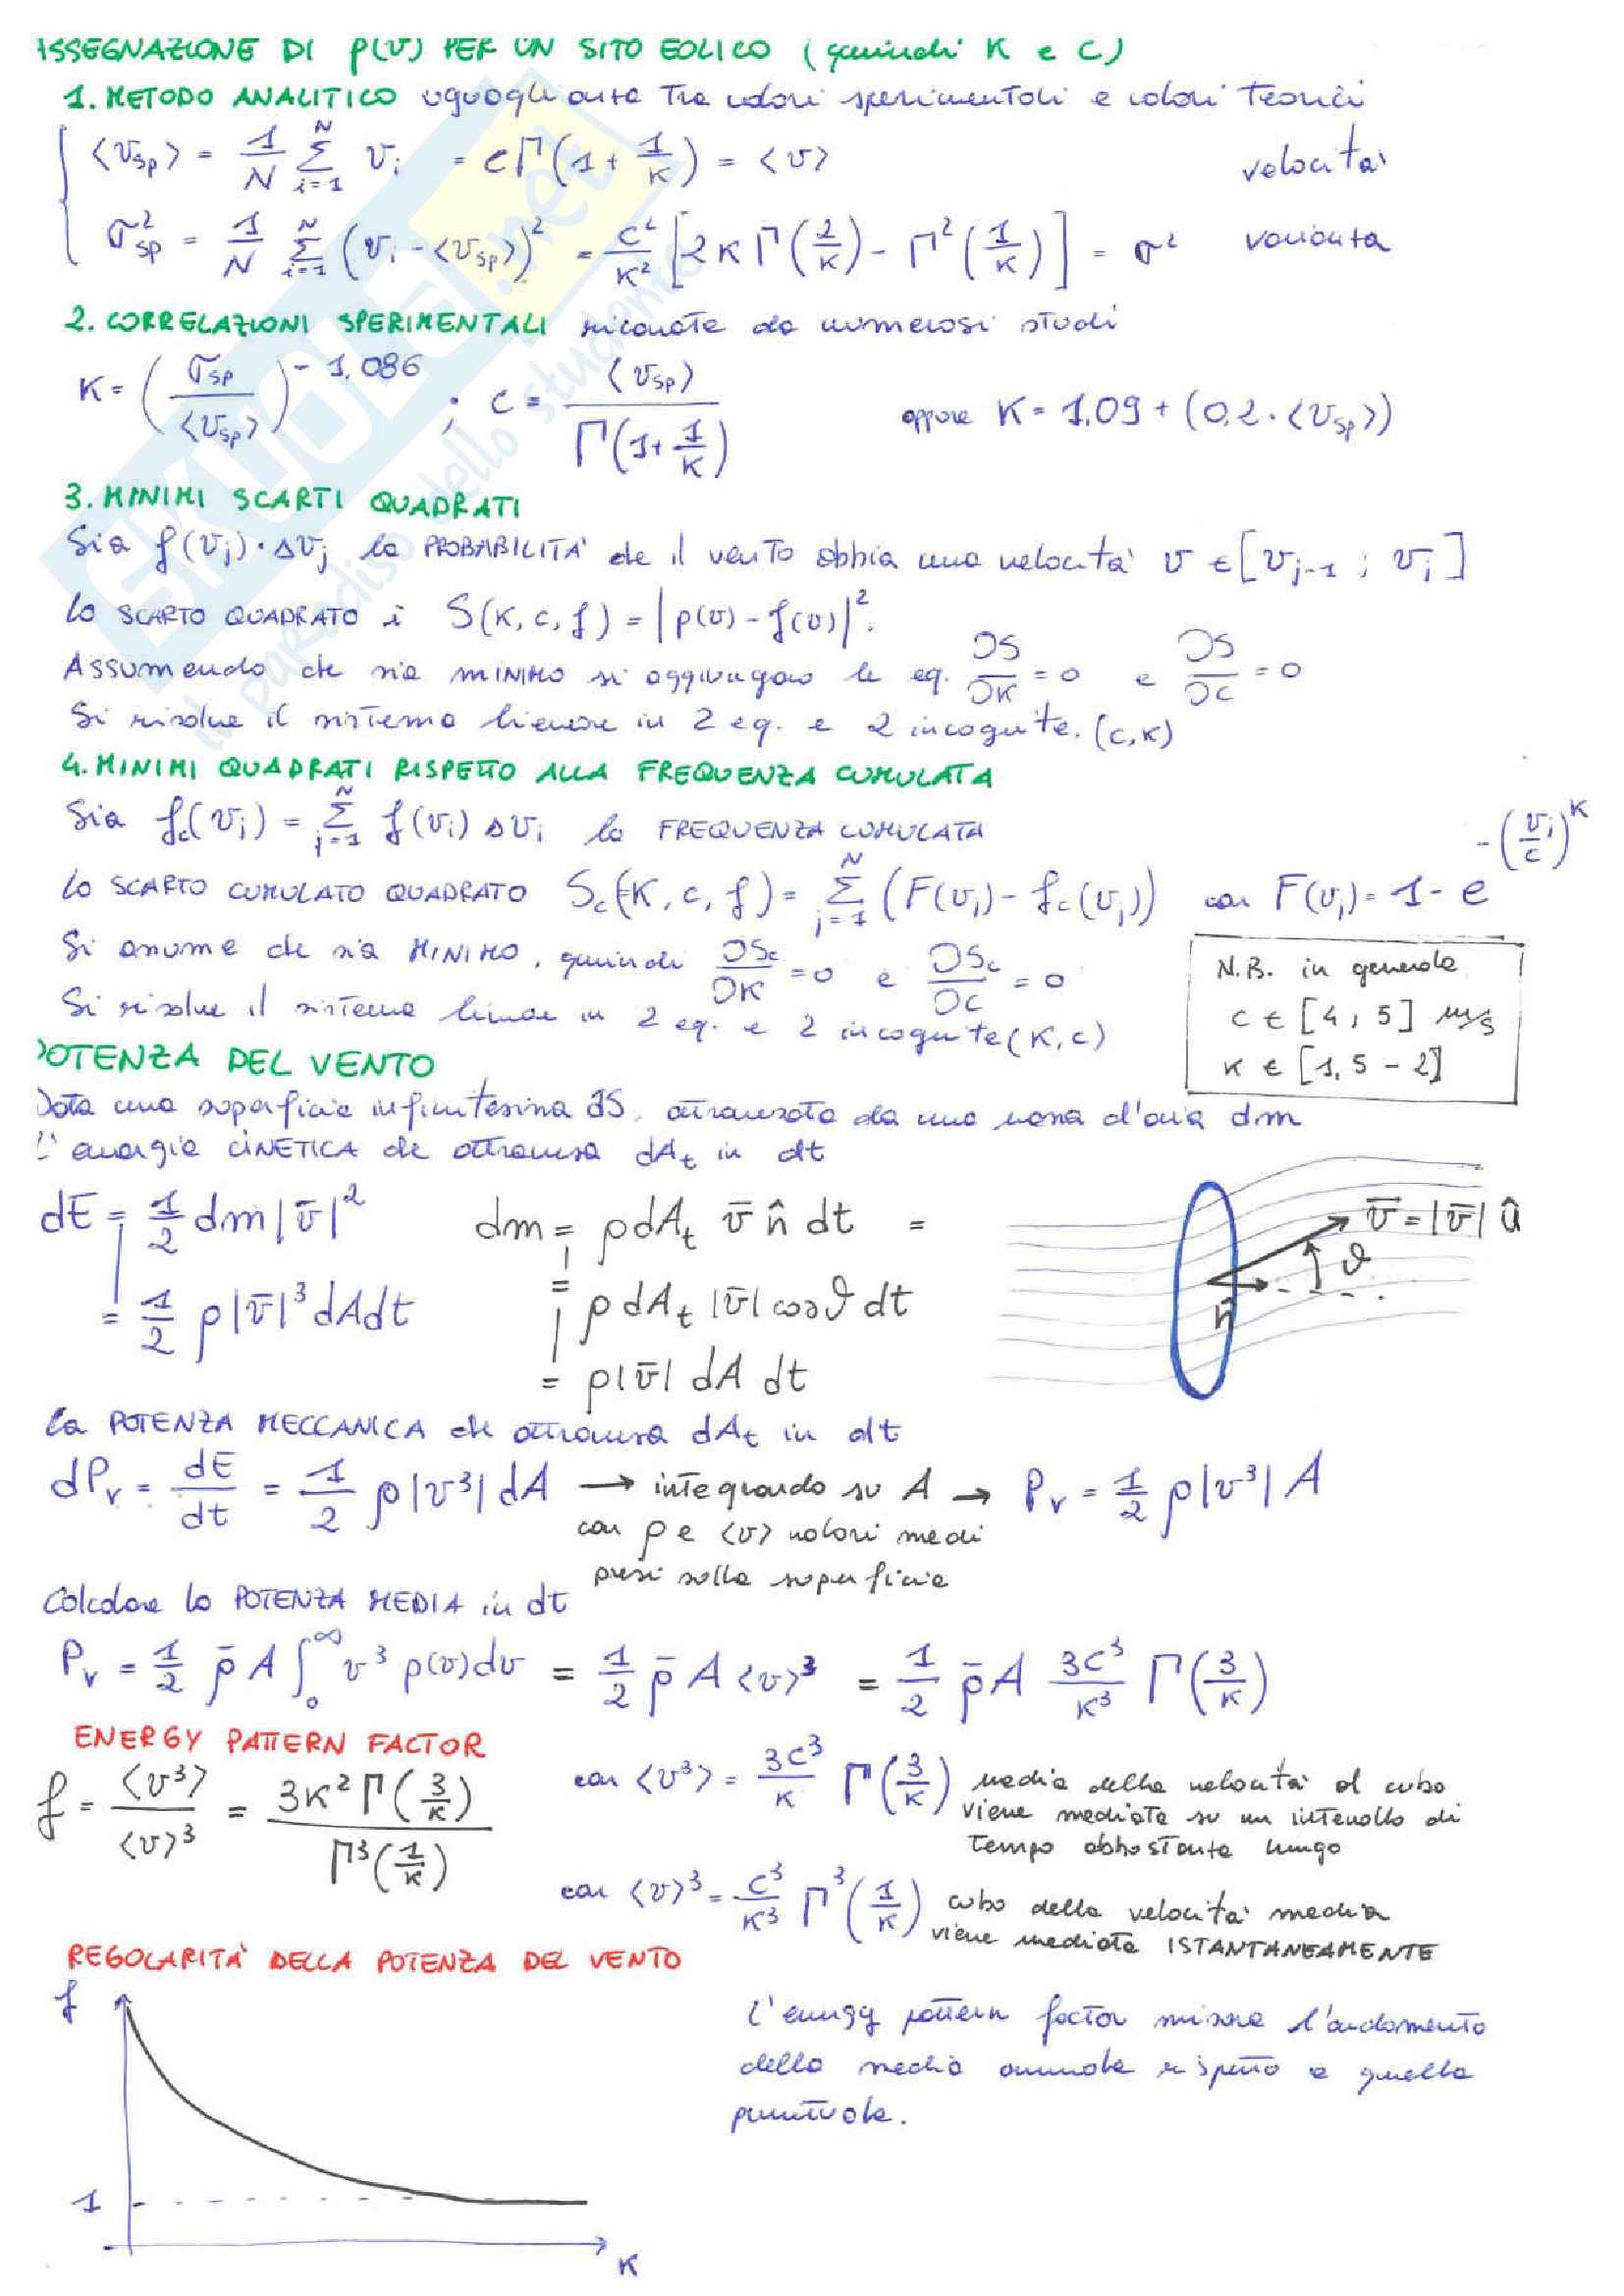 ASSEGNAZIONE DI p(v) PER UN SITO EOLICO (quindi K e C)
1. METODO ANALITICO uguaglianza tra valori sperimentali e valori teorici
⟨v_sp⟩ = 1/N Σ_{i=1}^{N} v_i = cΓ(1 + 1/K) = ⟨v⟩ velocità
σ²_sp = 1/N Σ_{i=1}^{N} (v_i - ⟨v_sp⟩)² = c²/K² [2KΓ(2/K) - Γ²(1/K)] = σ² varianza
2. CORRELAZIONI SPERIMENTALI ricavate da numerosi studi
K = (σ_sp / ⟨v_sp⟩)^{-1,086} ; c = ⟨v_sp⟩ / Γ(1+1/K) oppure K = 1,09 + (0,2 · ⟨v_sp⟩)
3. MINIMI SCARTI QUADRATI
Sia f(v_j)·Δv_j la PROBABILITÀ che il vento abbia una velocità v ∈ [v_{j-1} ; v_j]
Lo SCARTO QUADRATO è S(K, c, f) = |p(v) - f(v)|².
Assumendo che sia MINIMO si aggiungono le eq. ∂S/∂K = 0 e ∂S/∂C = 0
Si risolve il sistema lineare in 2 eq. e 2 incognite. (c,K)
4. MINIMI QUADRATI RISPETTO ALLA FREQUENZA CUMULATA
Sia f_c(v_j) = Σ_{j=1}^{N} f(v_i) Δv_i la FREQUENZA CUMULATA
Lo SCARTO CUMULATO QUADRATO S_c(K, c, f) = Σ_{j=1}^{N} (F(v_j) - f_c(v_j)) con F(v_j) = 1 - e^{-(v_j/c)^K}
Si assume che sia MINIMO, quindi ∂S_c/∂K = 0 e ∂S_c/∂C = 0
Si risolve il sistema lineare in 2 eq. e 2 incognite (K,c)
N.B. in generale
c ∈ [4 ; 5] m/s
K ∈ [1,5 - 2]
POTENZA DEL VENTO
Data una superficie infinitesima dS, attraversata da una massa d'aria dm
L'energia CINETICA che attraversa dA_t in dt
dE = 1/2 dm |v̄|² dm = ρ dA_t v̄ n̂ dt =
= 1/2 ρ|v̄|³ dAdt = ρ dA_t |v̄| cosϑ dt
= ρ|v̄| dA dt
v̄ = |v̄| û
ϑ
n̂
La POTENZA MECCANICA che attraversa dA_t in dt
dP_v = dE/dt = 1/2 ρ|v³| dA → integrando su A → P_v = 1/2 ρ|v³| A
con ρ e ⟨v⟩ valori medi
presi sulla superficie
Calcolare la POTENZA MEDIA in dt
P_v = 1/2 ρ̄ A ∫_0^∞ v³ p(v)dv = 1/2 ρ̄ A ⟨v⟩³ = 1/2 ρ̄ A 3C³/K³ Γ(3/K)
ENERGY PATTERN FACTOR
f = ⟨v³⟩/⟨v⟩³ = 3K²Γ(3/K) / Γ³(1/K)
con ⟨v³⟩ = 3C³/K Γ(3/K) media della velocità al cubo
viene mediata su un intervallo di
tempo abbastanza lungo
con ⟨v⟩³ = C³/K³ Γ³(1/K) cubo della velocità media
viene mediata ISTANTANEAMENTE
REGOLARITÀ DELLA POTENZA DEL VENTO
f
1
K
L'energy pattern factor misura l'andamento
della media annuale rispetto a quella
puntuale.
SKUOLA.net
il paradiso dello studente